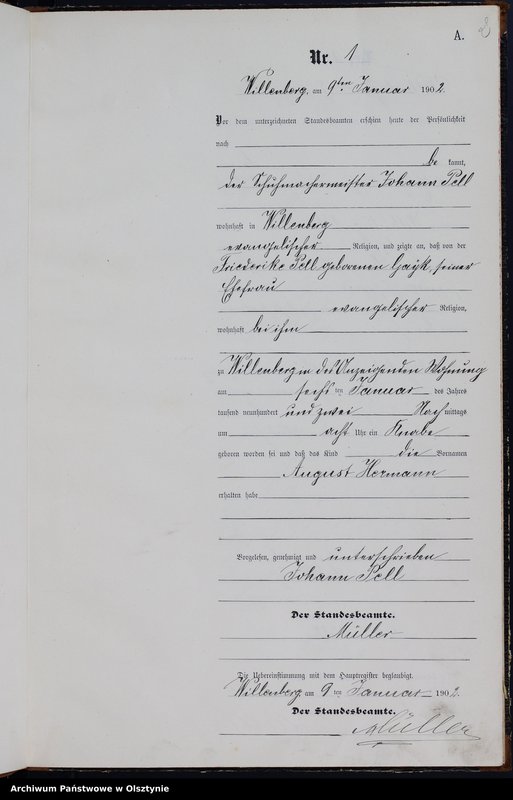 A.
Nr. 1
Willenberg, am 9ten Januar 1902.
Vor dem unterzeichneten Standesbeamten erschien heute der Persönlichkeit
nach
be kannt,
der Schuhmachermeister Johann Pell
wohnhaft in Willenberg
evangelischer Religion, und zeigte an, daß von der
Friederike Pell geborenen Gayk, seiner
Ehefrau
evangelischer Religion,
wohnhaft bei ihm
zu Willenberg in des Anzeigenden Wohnung
am sechs ten Januar des Jahres
tausend neunhundert und zwei Nach mittags
um acht Uhr ein Knabe
geboren worden sei und daß das Kind die Vornamen
August Hermann
erhalten habe
Vorgelesen, genehmigt und unterschrieben
Johann Pell
Der Standesbeamte.
Müller
Die Uebereinstimmung mit dem Hauptregister beglaubigt.
Willenberg, am 9 ten Januar 1902.
Der Standesbeamte.
Müller
Archiwum Państwowe w Olsztynie